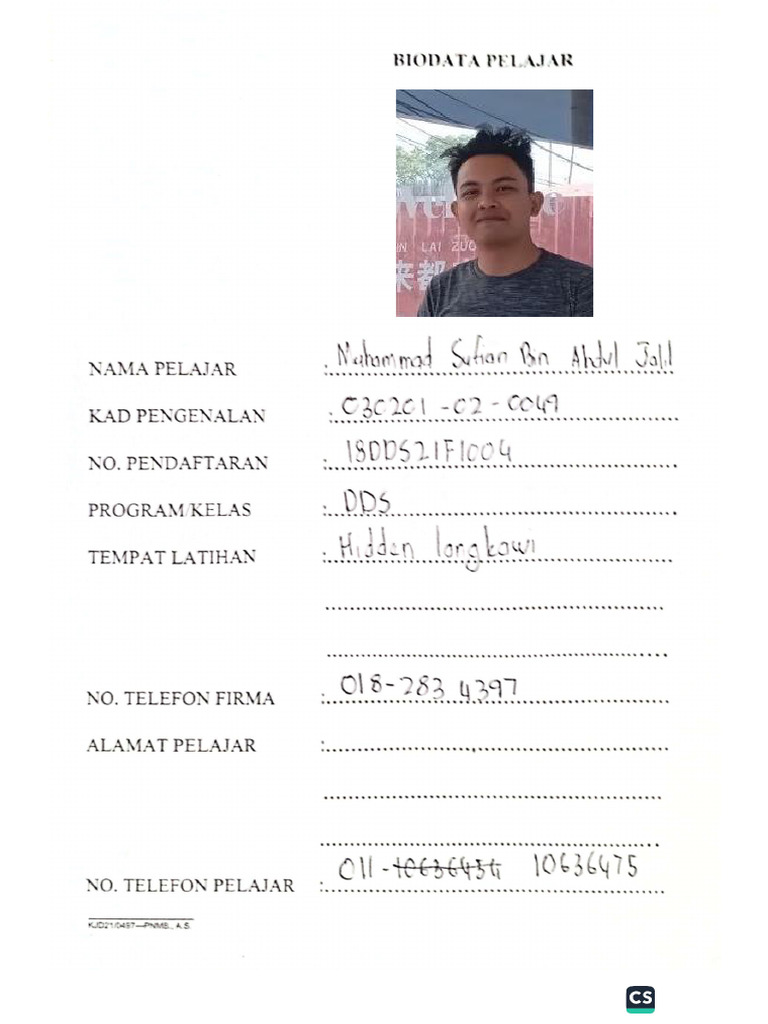 BIODATA PELAJAR
LAI ZUO
来都
NAMA PELAJAR : Muhammad Sufian Bin Abdul Jalil
KAD PENGENALAN : 030201-02-0049
NO. PENDAFTARAN : 18DDS21F1004
PROGRAM/KELAS : DDS
TEMPAT LATIHAN : Hidden langkawi
NO. TELEFON FIRMA : 018-283 4397
ALAMAT PELAJAR :
NO. TELEFON PELAJAR : 011-10636434 10636475
KJD21/0497—PNMB., A.S.
CS